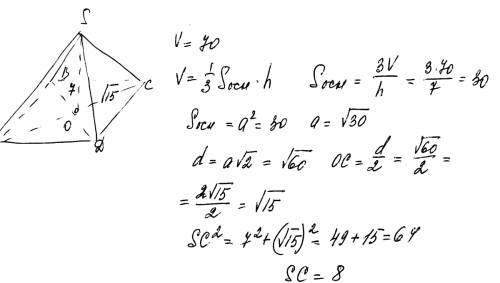 S
B
7
√15
C
O
D
V = 70
V = 1/3 Sосн · h    Sосн = 3V/h = 3·70/7 = 30
Sосн = a² = 30    a = √30
d = a√2 = √60    OC = d/2 = √60/2 =
= 2√15/2 = √15
SC² = 7² + (√15)² = 49 + 15 = 64
SC = 8